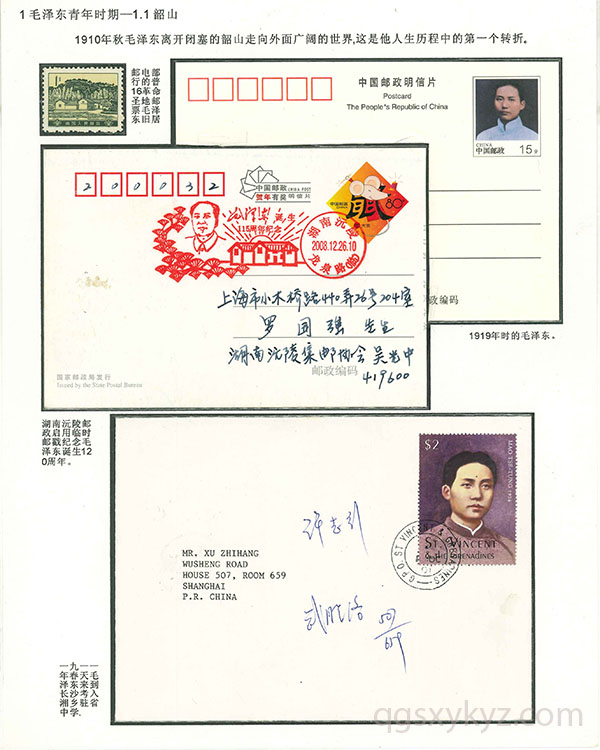 1毛泽东青年时期—1.1韶山
1910年秋毛泽东离开闭塞的韶山走向外面广阔的世界,这是他人生历程中的第一个转折。
邮电部邮
行的普
16革命
圣地邮
票毛泽
东旧居
中国邮政明信片
Postcard
The People's Republic of China
CHINA
中国邮政 15分
邮政编码
1919年时的毛泽东。
200032
中国邮政 CHINA POST
贺年有奖 明信片
80
毛泽东诞生
115周年纪念
湖南沅陵
2008.12.26.10
龙泉路
上海市小木桥路440弄26号204室
罗国强 先生
湖南沅陵集邮协会 吴光中
邮政编码 419600
国家邮政局发行
Issued by the State Postal Bureau
湖南沅陵邮
政启用临时
邮戳纪念毛
泽东诞生12
0周年。
$2
MAO TSE-TUNG 1918
ST. VINCENT
& THE GRENADINES
G.P.O. ST. VINCENT & GRENADINES
MR. XU ZHIHANG
WUSHENG ROAD
HOUSE 507, ROOM 659
SHANGHAI
P.R. CHINA
武胜路 507
659
一九一一
年春天毛
泽东来到
长沙考入
湘乡驻省
中学.
qgsxykyz.com